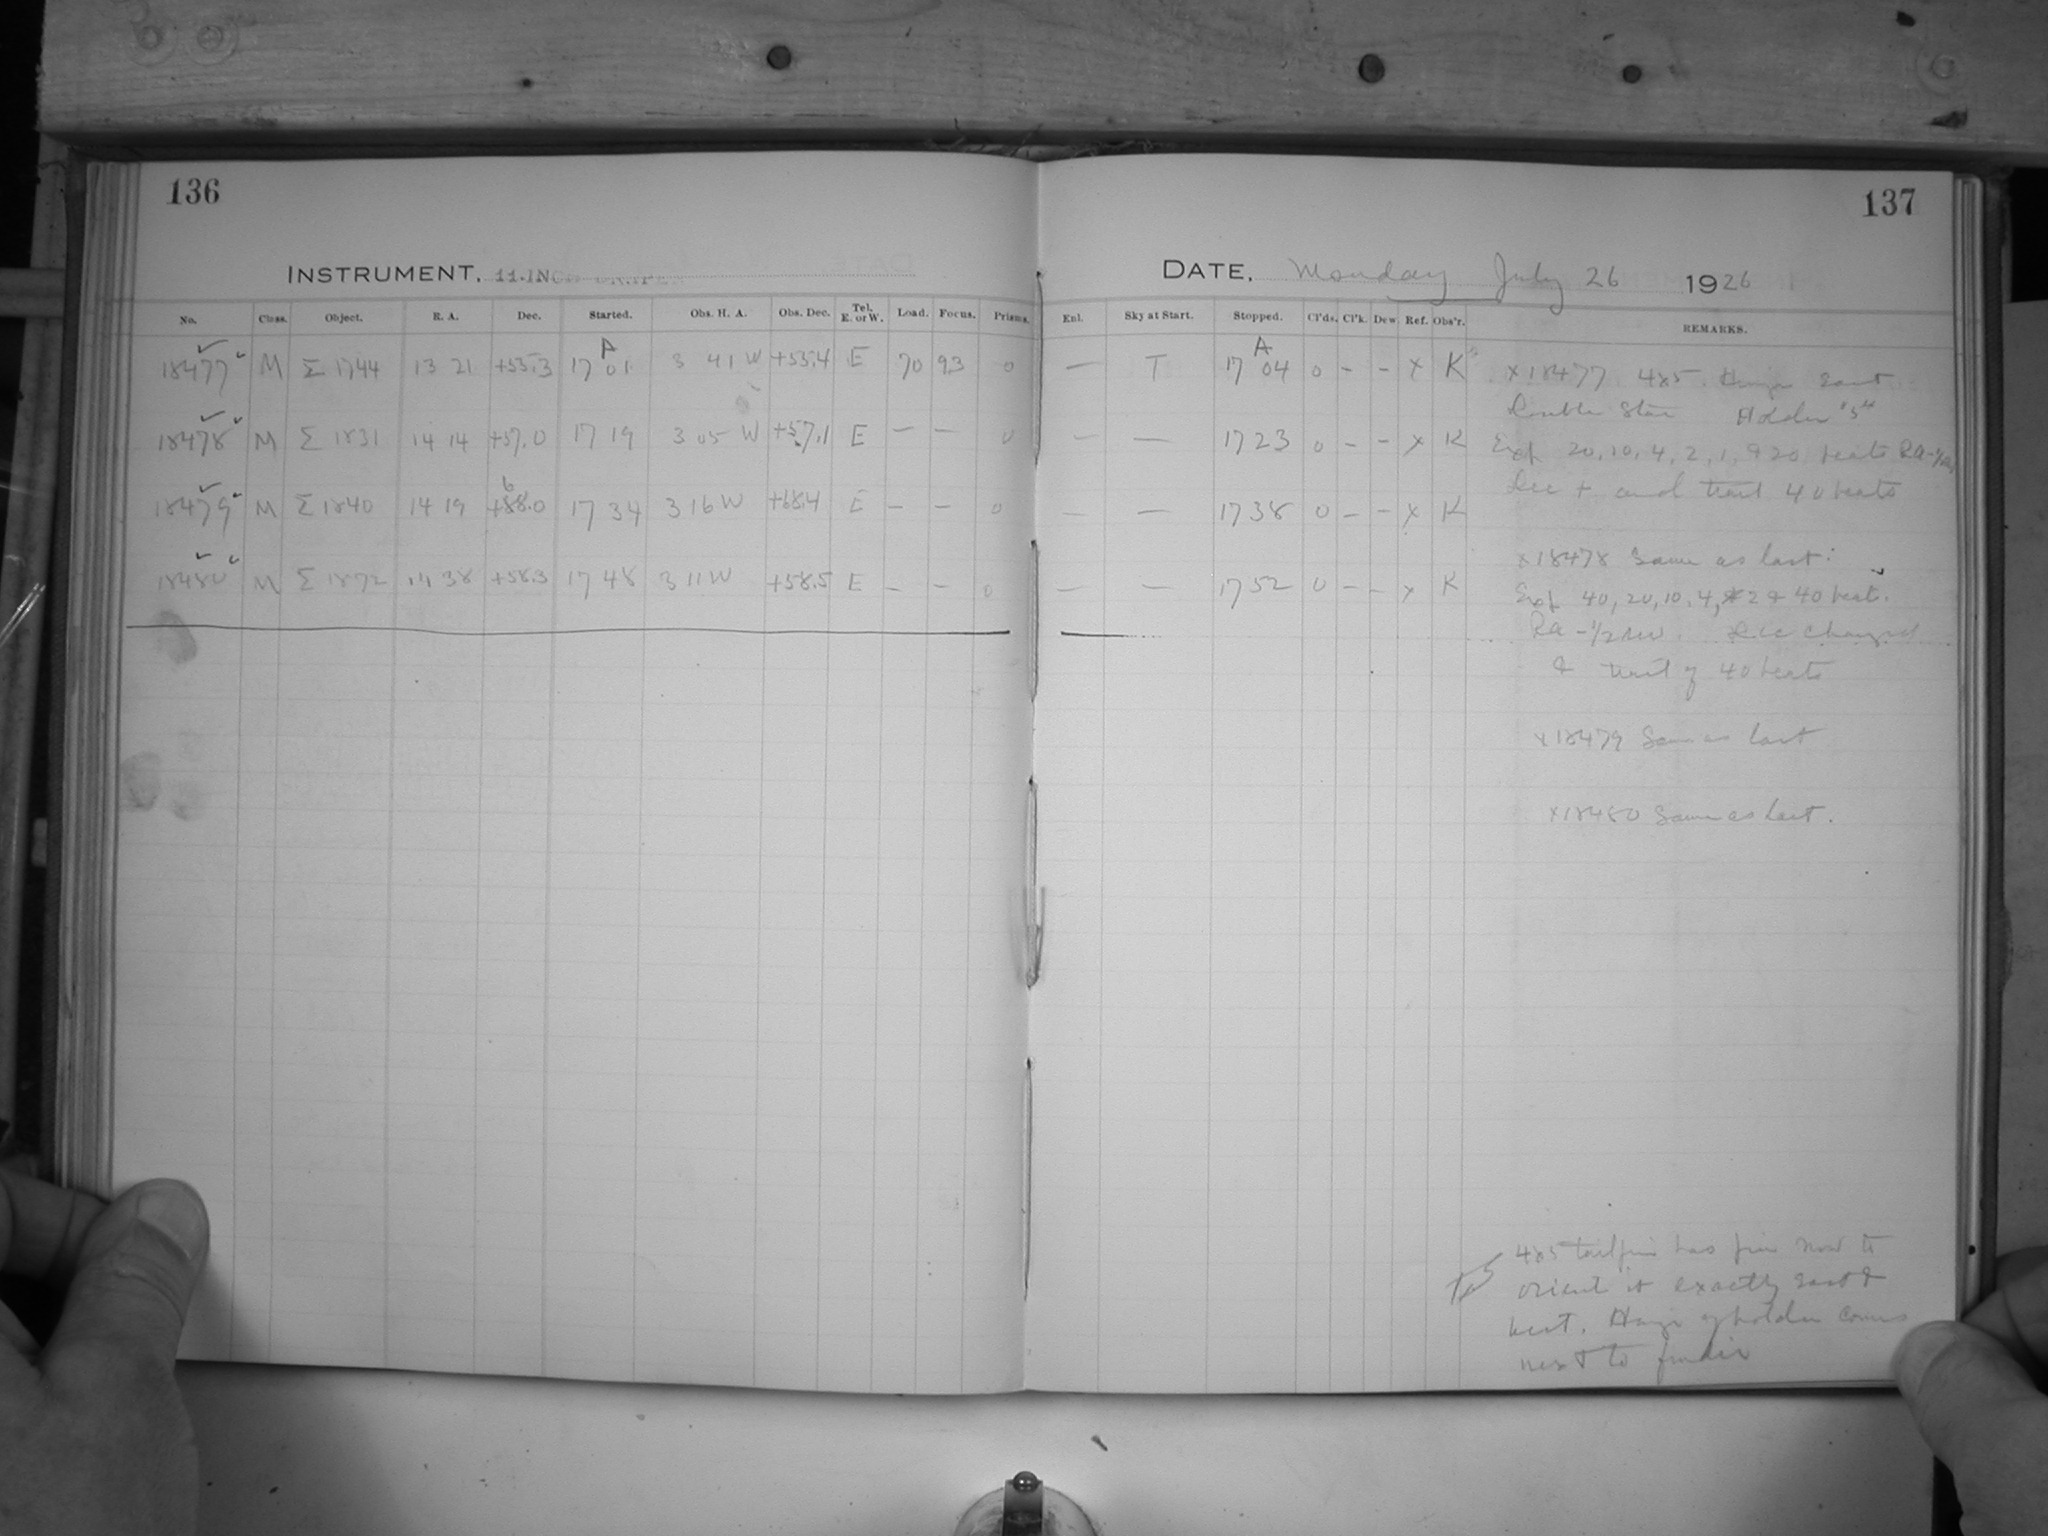 136
137
INSTRUMENT. 11-INCH DRAPER
DATE. Monday July 26 1926
No. Class. Object. R. A. Dec. Started. Obs. H. A. Obs. Dec. Tel. E. or W. Load. Focus. Prisms. Enl. Sky at Start. Stopped. Cl'ds. Cl'k. Dew Ref. Obs'r. REMARKS.
18477 M Σ 1744 13 21 +55.3 17 A 01 3 41 W +55.4 E 70 93 0 — T 17 A 04 0 - - x K
18478 M Σ 1831 14 14 +57.0 17 19 3 05 W +57.1 E — — 0 — — 17 23 0 - - x K
18479 M Σ 1840 14 19 +68.0 17 34 3 16 W +68.4 E — — 0 — — 17 38 0 - - x K
18480 M Σ 1872 14 38 +58.3 17 48 3 11 W +58.5 E — — 0 — — 17 52 0 - - x K
x18477 4x5. Hinge East
Double Star Holder "5"
Exp 20, 10, 4, 2, 1, & 20 beats RA -1/2
Dec + and trail 40 beats
x18478 Same as last:
Exp 40, 20, 10, 4, 2 & 40 beats.
RA -1/2 Dec changed
& trail of 40 beats
x18479 Same as last
x18480 Same as last.
4x5 has now to
orient it exactly East &
West. Hinge of holder comes
next to finder